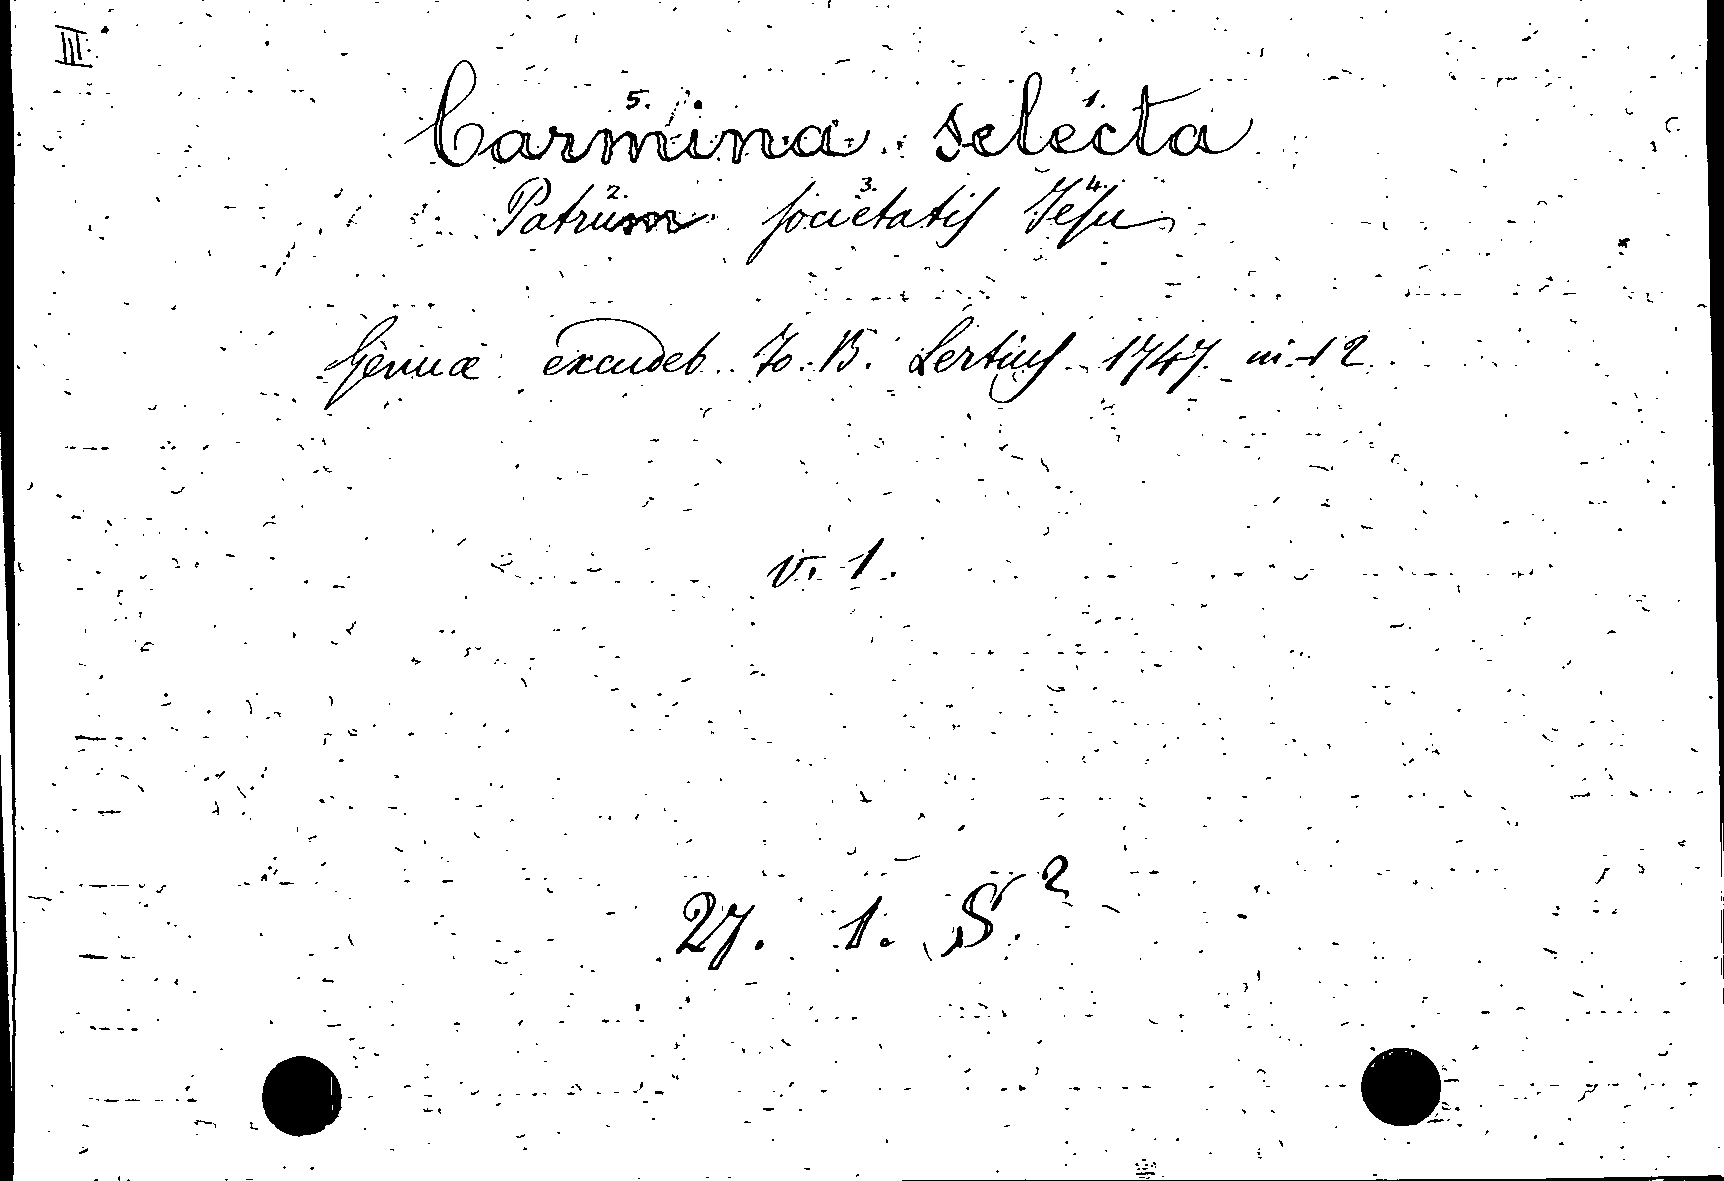 III.
Carmina selecta
Patrum societatis Jesu
Genuæ excudeb. Jo. B. Lertius 1747 in-12
v. 1.
27. 1. S.²